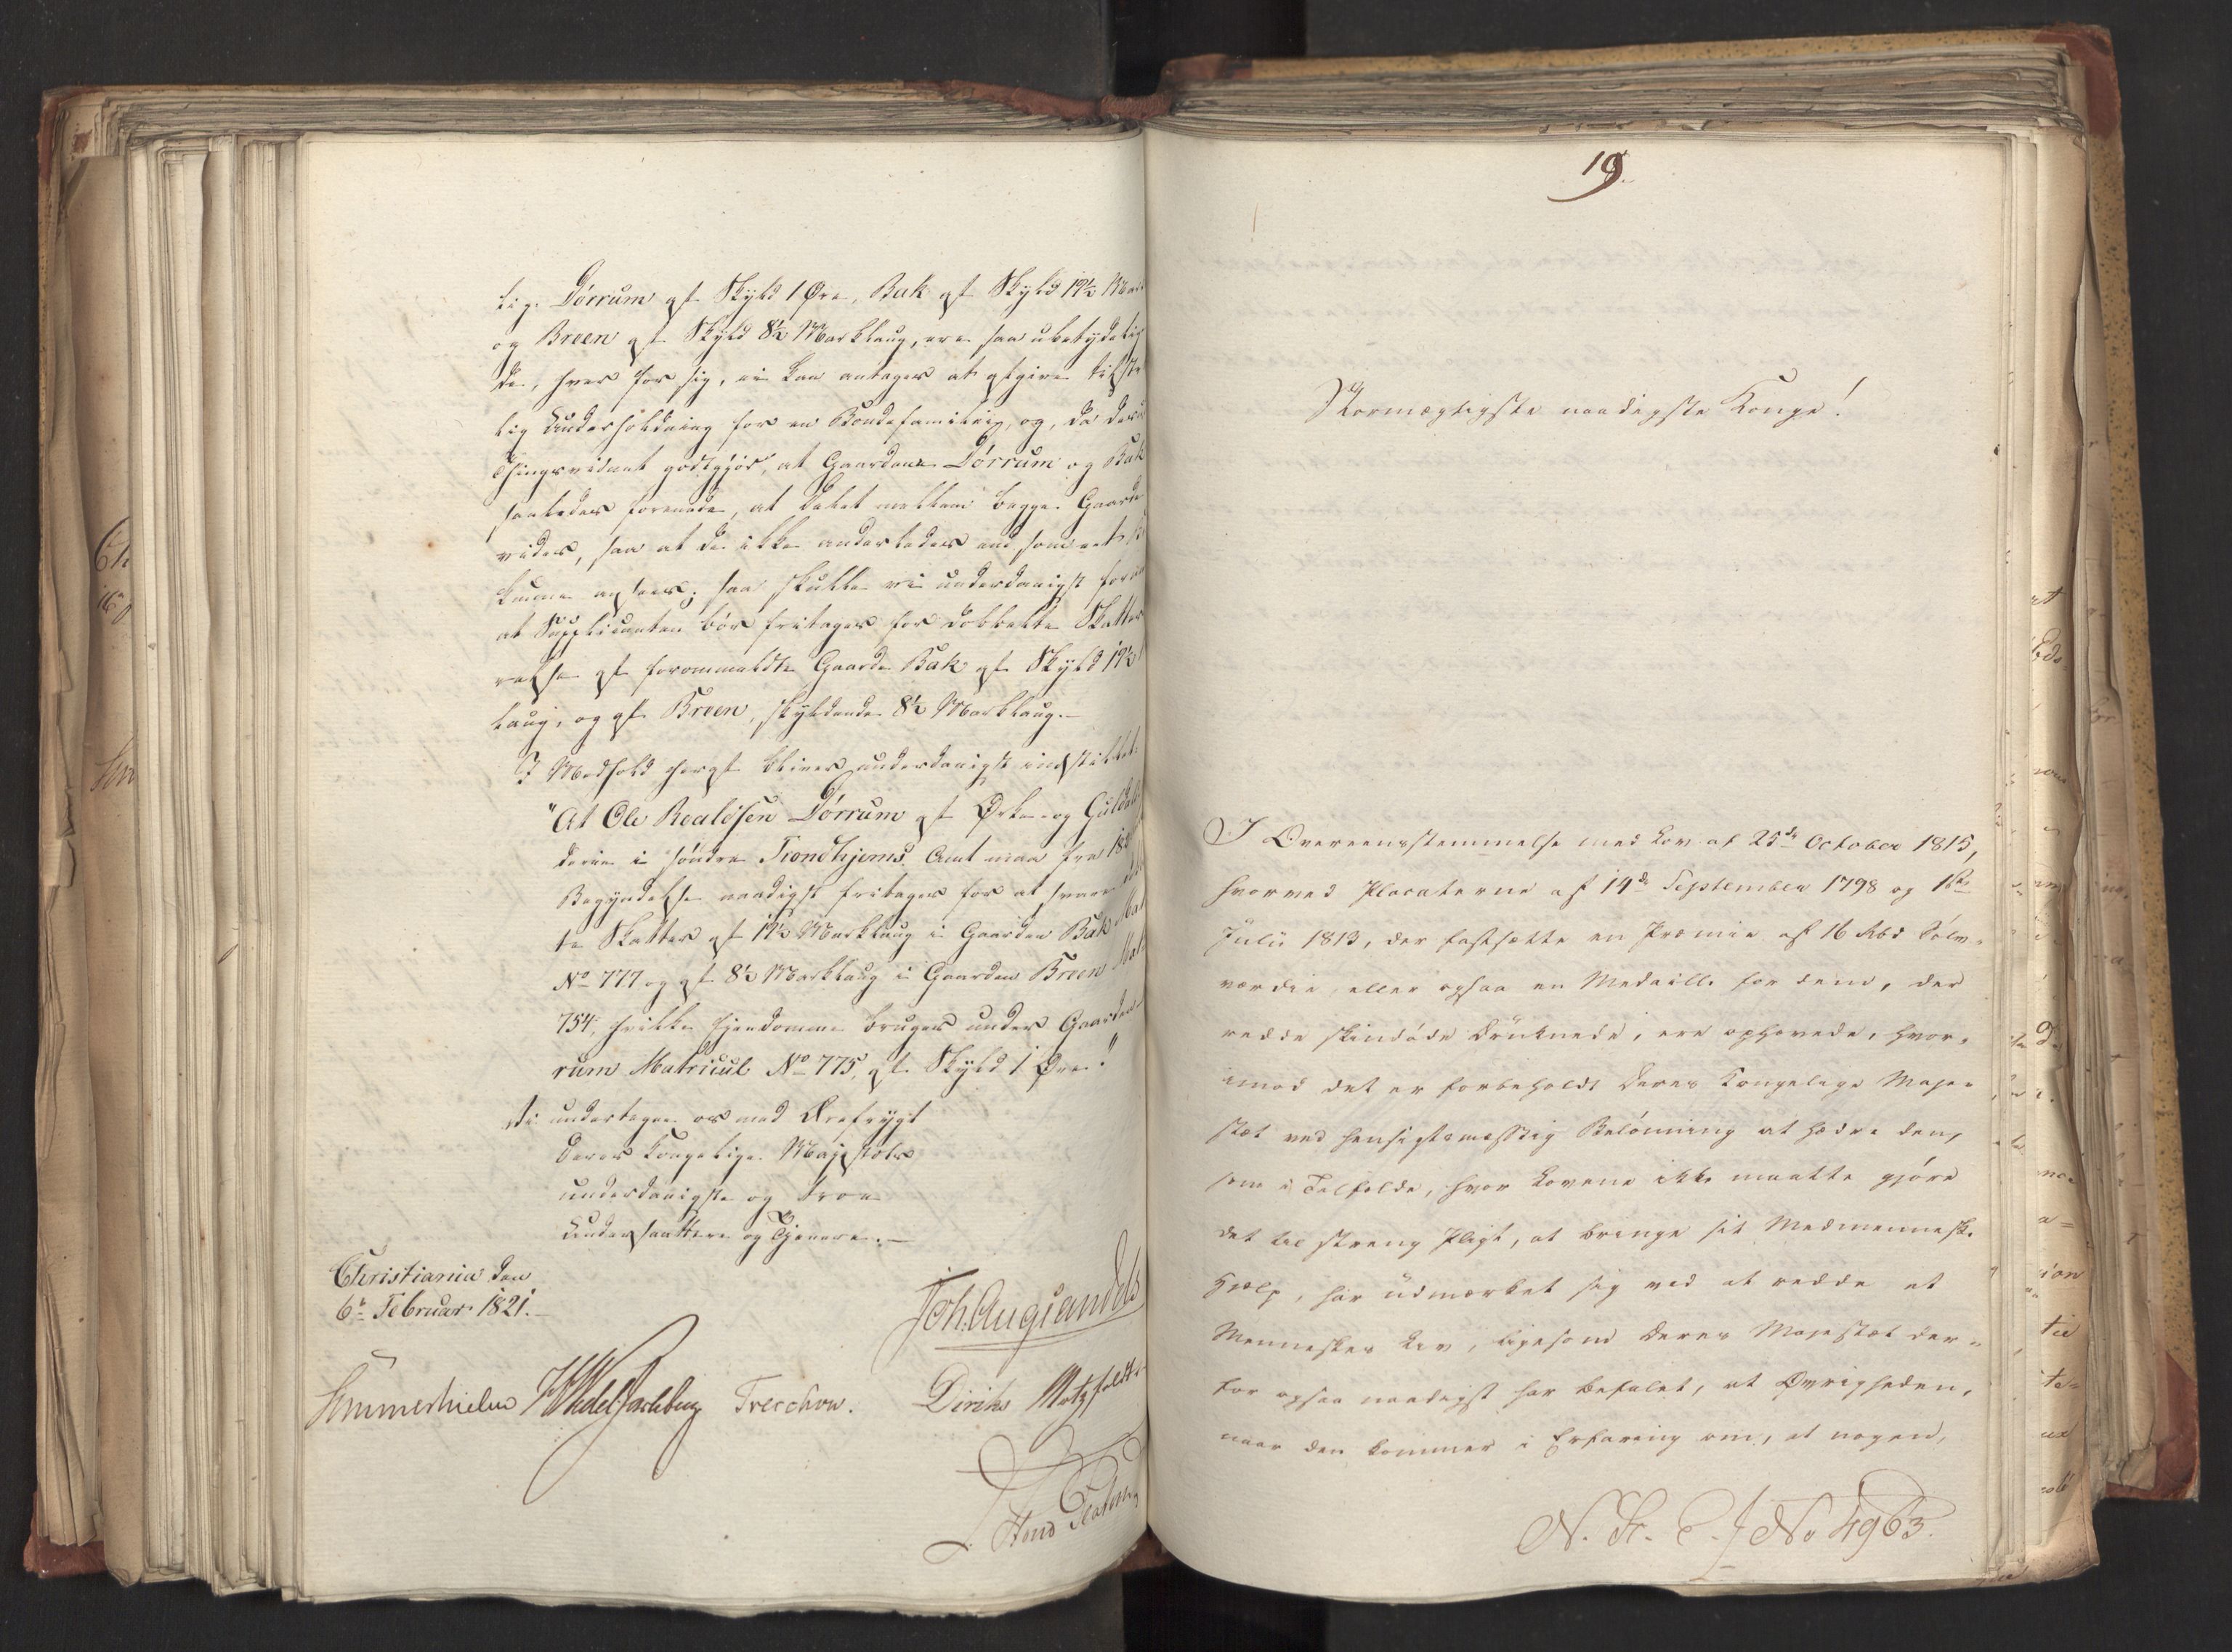 lig. Dørrum af Skyld 1 Øre, Bak af Skyld 19½ Mark
og Breen af Skyld 8½ Marklaug, ere saa ubetydelig
de, hver for sig, ei kan antages at afgive tilstr
lig Underholdning for en Bondefamilie, og, da det
Thingsvidnet godtgjør, at Gaardene Dørrum og Bak
saaledes forenede, at Skellet mellem begge Gaarde
vides, saa at de ikke anderledes end som eet
kunne ansees; saa skulle vi underdanigst for
at Supplicanten bør fritages for dobbelte Skatter
relse af forommeldte Gaarde Bak af Skyld 19½
laug, og af Breen, skyldende 8½ Marklaug.—
I Medhold heraf bliver underdanigst indstillet:
"At Ole Realdsen Dørrum af Ørke- og Guldal
derie i søndre Trondhjems Amt maa fra 18
Begyndelse naadigst fritages for at svare
te Skatter af 19½ Marklaug i Gaarden Bak Mat
No 777 og af 8½ Marklaug i Gaarden Breen Mat
754, hvilke Ejendomme bruges under Gaarden
rum Matricul No 775, af Skyld 1 Øre."
Vi undertegne os med Ærefrygt
Deres Kongelige Majestæts
underdanigste og troe
Undersaattere og Tjenere.—
Christiania den
6te Februar 1821.—
Joh: Aug: Sandels
Sommerhielm HWedel Jarlsberg Treschow. Diriks Motzfeldt
19.
Stormægtigste naadigste Konge!
I Overeensstemmelse med Lov af 25de October 1815,
hvorved Placaterne af 14de September 1798 og 1ste
Julii 1813, der fastsætte en Præmie af 16 Rbd Sølv-
værdie, eller ogsaa en Medaille for dem, der
redde skindøde Druknede, ere ophævede, hvor-
imod det er forbeholdt Deres Kongelige Maje-
stæt ved hensigtsmæssig Belønning at hædre den,
som i Tilfælde, hvor Lovene ikke maatte gjøre
det til streng Pligt, at bringe sit Medmenneske
Hjælp, har udmærket sig ved at redde et
Menneskes Liv, ligesom Deres Majestæt der-
for ogsaa naadigst har befalet, at Øvrigheden,
naar den kommer i Erfaring om, at nogen,
No 4963.